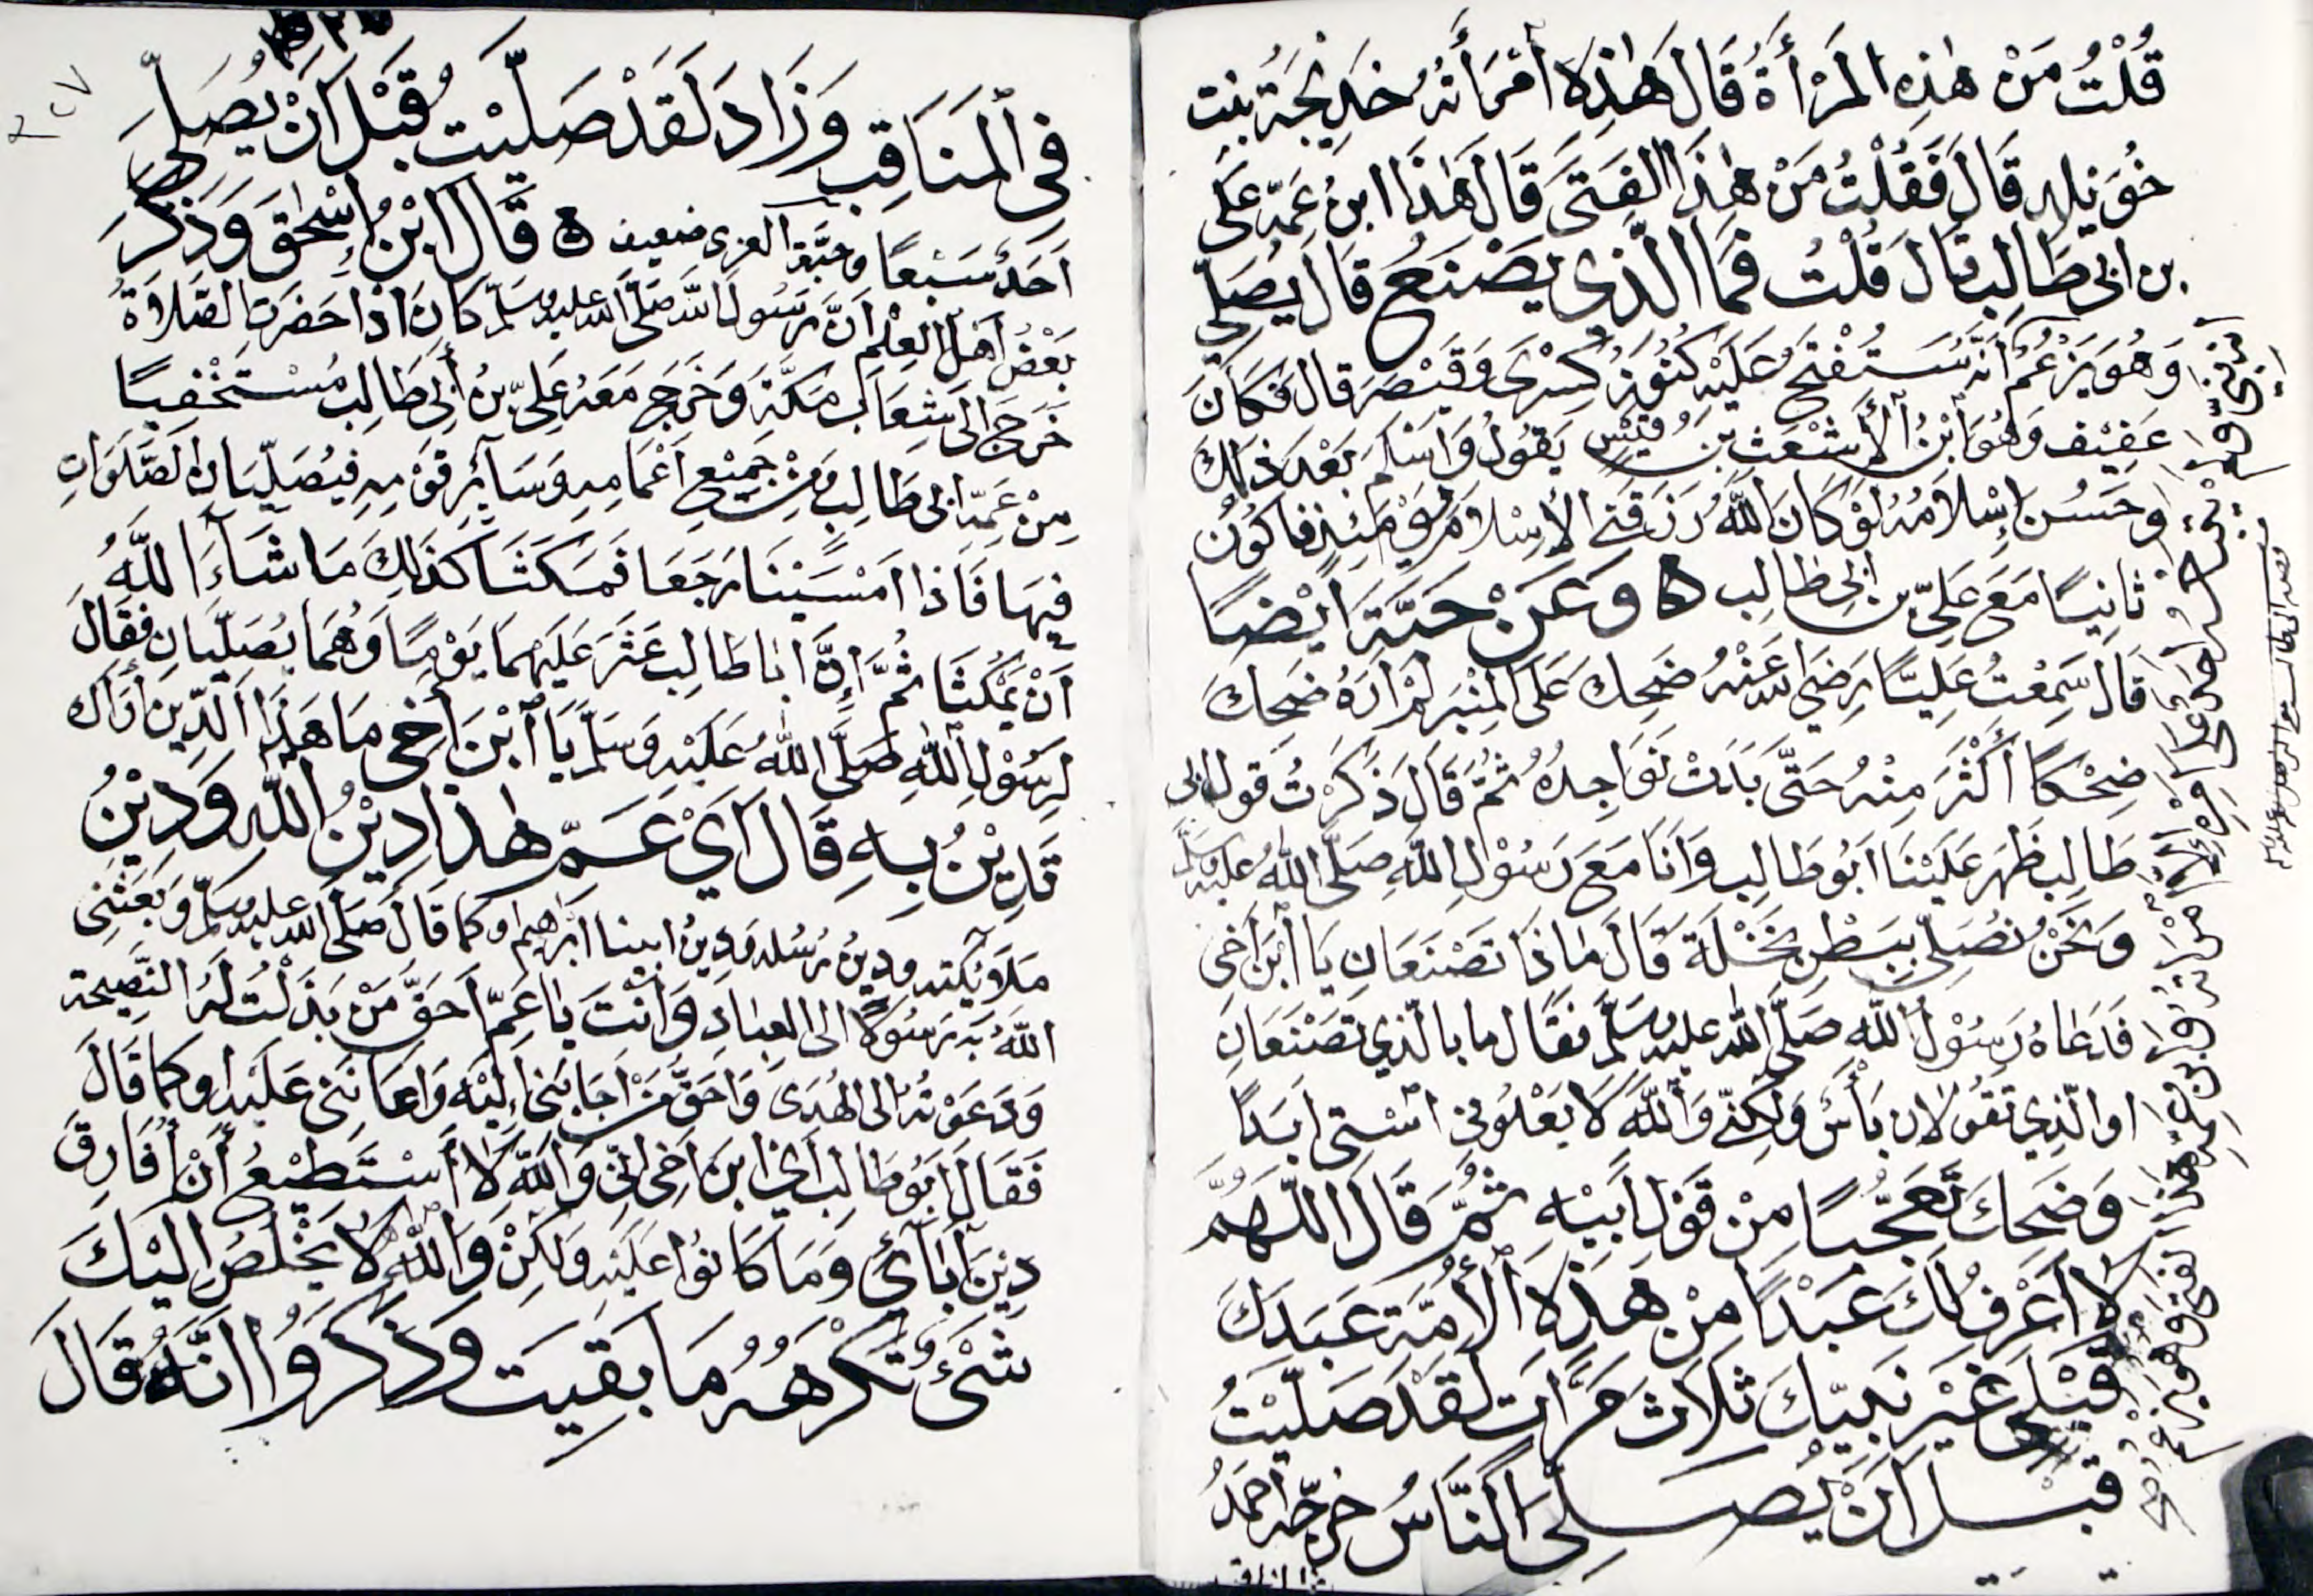 قُلْتُ مَنْ هٰذِهِ المَرْأَةُ قَالَ هٰذِهِ امْرَأَتُهُ خَدِيجَةُ بنت
خُوَيْلِدٍ قَالَ فَقُلْتُ مَنْ هٰذَا الفَتَى قَالَ هٰذَا ابنُ عَمِّهِ عَلى
بن ابى طَالِب قَالَ قُلْت فَمَا الَّذِي يَصْنَعُ قَالَ يُصَلِّي
وَهُوَ يَزْعُمُ أَنَّه سَتُفْتَحُ عَلَيْهِ كُنُوزُ كِسْرَى وَقَيْصَرَ قَالَ فَكَانَ
عَفِيْف وَهُوَ ابْنُ الأَشْعَثِ بنِ قَيْسٍ يَقُولُ وَاسْلَمَ بَعْدَ ذَلِكَ
وَحَسُنَ إِسْلَامُهُ لَوْ كَانَ اللَّهُ رَزَقَنِي الإِسْلَامَ يَوْمَئِذٍ فَاكُوْن
ثَانِيًا مَعَ عَلِيِّ بن ابى طالِب ه وَعَنْ حَبَّةَ أَيْضًا
قَالَ سَمِعْتُ عَلِيًّا رَضِيَ اللهُ عَنْهُ ضَحِكَ عَلَى المِنْبَرِ لَمْ ارَهُ ضَحِكَ
ضِحْكًا أَكْثَرَ مِنْهُ حَتَّى بَدَتْ نَوَاجِدُهُ ثُمَّ قَالَ ذَكَرْتُ قَولَ ابى
طَالِب ظَهَرَ عَلَيْنَا ابُو طَالِب وَانَا مَعَ رَسُوْلِ اللهِ صَلَّى اللهُ عليه وسلم
وَنَحْنُ نُصَلِّي بِبَطْنِ نَخْلَةَ قَالَ مَاذَا تَصْنَعَانِ يَا ابْنَ أَخِى
فَدَعَاهُ رَسُوْلُ اللهِ صَلَّى الله عليه وسلم فقال ما بالّذي تَصْنَعَانِ
او الّذِي تقولان بَأْسٌ وَلَكِنّي وَاللهِ لَا يَعْلُوني اسْتِي ابَداً
وَضَحِكَ تَعَجُّبًا مِنْ قَوْلِ ابِيْهِ ثُمَّ قَالَ اللَّهُمَّ
لَا أَعْرِفُ لَكَ عَبْدًا مِنْ هَذِهِ الأُمَّةِ عَبَدَكَ
قَبْلِي غَيْرَ نَبِيِّكَ ثَلَاثَ مَرَّات لَقَدْ صَلَّيْتُ
قَبْلَ انْ يُصَلِّيَ النَّاسُ خرّجه أحمدُ
فِي الْمَنَاقِب وَزَادَ لَقَدْ صَلَّيْت قَبْلَ انْ يُصَلِّيَ
أَحَدٌ سَبْعًا وحبَّة العرني ضعيف ه قَالَ ابْنُ إِسْحٰقَ وَذَكَرَ
بَعْضُ أَهْلِ العِلْمِ انَّ رَسُولَ اللهِ صَلَّى الله عليه وسلم كَانَ اذَا حَضَرَتِ الصَّلَاةُ
خَرَجَ الَى شِعَابِ مَكَّةَ وَخَرَجَ مَعَهُ عَلِيُّ بنُ أَبِي طَالِب مُسْتَخْفِيًا
مِنْ عَمِّهِ ابى طَالِب وَمِنْ جَمِيْعِ أَعْمَامِهِ وَسَائِرِ قَوْمِهِ فَيُصَلِّيَانِ الصَّلَوَاتِ
فِيهَا فَاذَا امْسَيْنَا رَجَعَا فَمَكَثَا كَذَلِكَ مَا شَاءَ اللهُ
اَنْ يَمْكُثَا ثُمَّ إِنَّ ابَا طَالِب عَثَرَ عَلَيْهِمَا يَوْمًا وَهُمَا يُصَلِّيَانِ فَقَالَ
لِرَسُوْلِ اللهِ صَلَّى اللهُ عَلَيْهِ وَسَلَّمَ يَا ابْنَ أَخِي مَا هَذَا الدِّينُ أَرَاكَ
تَدِيْنُ بِهِ قَالَ اَيْ عَمِّ هٰذَا دِيْنُ اللهِ وَدِيْنُ
مَلَائِكَتِهِ ودِينُ رُسُلِهِ وَدِينُ ابينا ابْرَاهِيم او كما قَالَ صَلَّى الله عليه وسلم وَبَعَثَنِي
اللهُ بِهِ رَسُولًا الى العِبَادِ وَأَنْتَ يَا عَمِّ احَقُّ مَنْ بَذَلْت لَهُ النَّصِيحة
وَدَعَوْتُهُ الى الهُدَى وَاحَقُّ مَنْ اجَابَنِي إِلَيْهِ وَاعَانَنِي عَلَيْهِ او كَمَا قَالَ
فَقَالَ ابُو طَالِب اي ابنَ أَخِي انّي وَاللهِ لَا أَسْتَطِيْعُ أَنْ أُفَارِقَ
دِيْنَ آبَائِي وَمَا كَانُوا عَلَيْهِ وَلَكِنْ وَاللهِ لَا يَخْلُصُ إِلَيْكَ
شَيْءٌ تَكْرَهُهُ مَا بَقِيت وَذَكَرُوا انَّهُ قَالَ